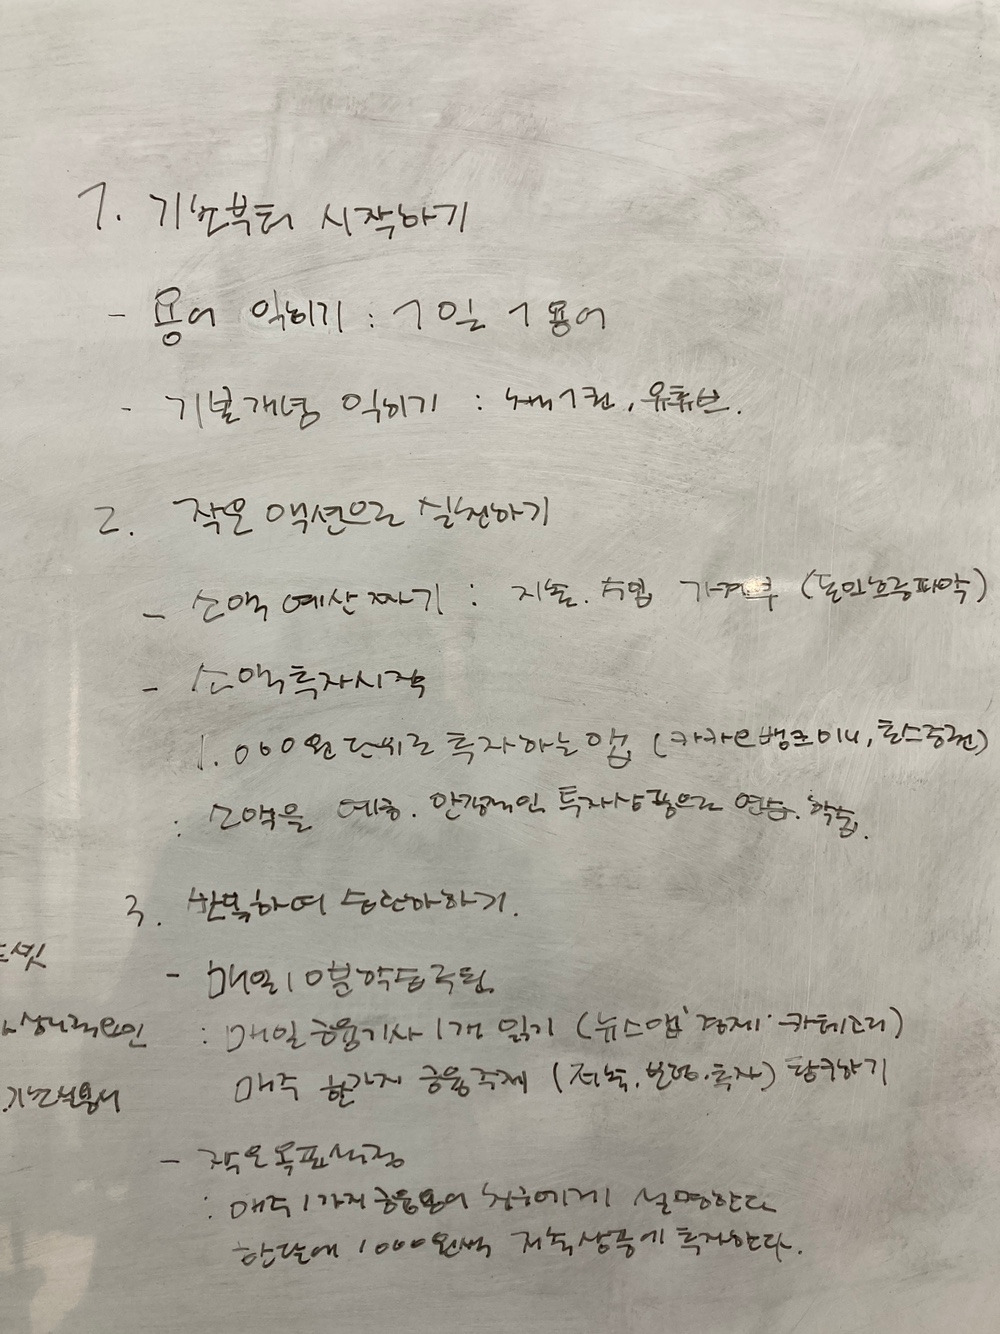 1. 기본부터 시작하기
- 용어 익히기 : 1일 1용어
- 기본개념 익히기 : 1권, 유튜브.
2. 작은 액션으로 실천하기
- 소액 예산짜기 : 지출. 수입 가계부 (돈의흐름파악)
- 소액투자시작
1.000원단위로 투자하는앱 (카카오뱅크미니, 토스증권)
: 소액을 예측. 안정적인 투자상품으로 연습. 학습.
3. 반복하며 습관화하기.
- 매일10분학습루틴
: 매일 금융기사 1개 읽기 (뉴스앱 '경제' 카테고리)
매주 한가지 금융주제 (저축.보험.투자) 탐구하기
- 작은목표설정
: 매주1가지금융용어 친구에게 설명한다
한달에 1000원씩 저축상품에 투자한다.